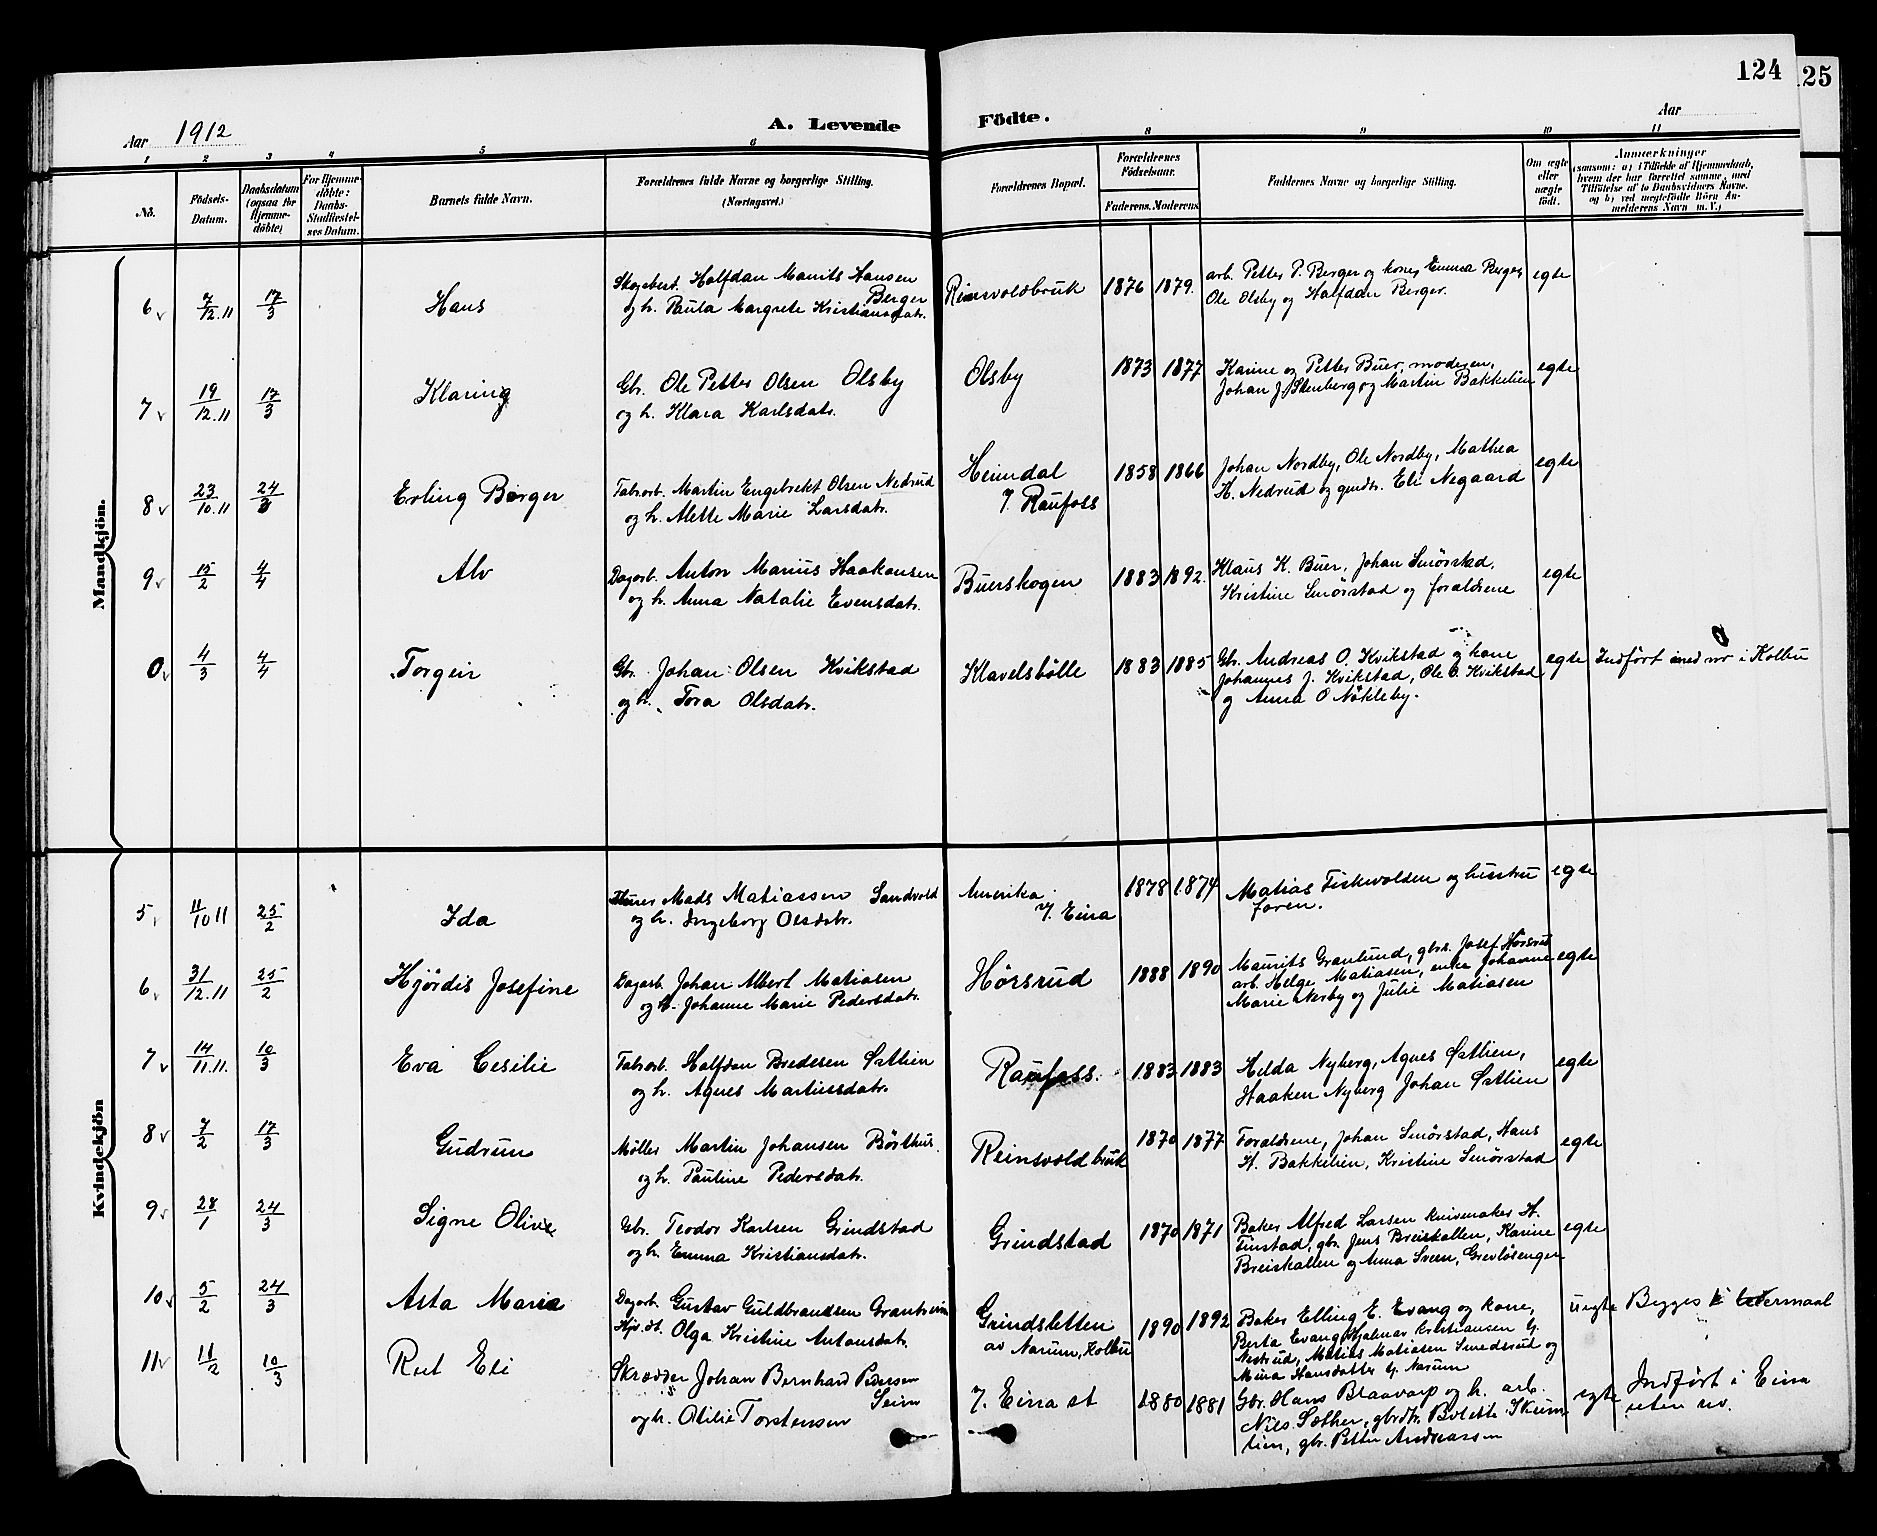 124
25
Aar 1912
A. Levende
Födte.
Aar
1 2 3 4 5 6 8 9 10 11
No.
Födsels-
Datum.
Daabsdatum
(ogsaa for
Hjemme-
döbte)
For Hjemme-
döbte:
Daabs-
Stadfæstel-
ses Datum.
Barnets fulde Navn.
Forældrenes fulde Navne og borgerlige Stilling.
(Næringsvei.)
Forældrenes Bopæl.
Forældrenes
Födselsaar.
Faderens. Moderens.
Faddernes Navne og borgerlige Stilling.
Om ægte
eller
uægte
födt.
Anmærkninger
(saasom: a) i Tilfælde af Hjemmedaab,
hvem der har forrettet samme, med
Tilföielse af to Daabsvidners Navne.
og b) ved uægtefödte Börn An-
melderens Navn m. V.)
Mandkjön.
6 7/12.11 17/3 Hans
Skogsbest. Halfdan Maurits Hansen
Berger
og h. Paula Margrete Kristiansdatr.
Reinsvoldbruk 1876 1879.
arb. Petter P. Berger og kone Emma Berger
Ole Olsby og Halfdan Berger.
egte
7 19/12.11 17/3 Klaring
Gbr. Ole Petter Olsen Olsby
og h. Klara Karlsdatr.
Olsby 1873 1877
Karine og Petter Buer, moderen,
Johan J. Stenberg og Martin Bakkelien
egte
8 23/10.11 24/3 Erling Berger
Fabrarb. Martin Engebrekt Olsen Nedrud
og h. Alette Marie Larsdatr.
Heimdal
7. Raufoss
1858 1866
Johan Nordby, Ole Nordby, Mathea
H. Nedrud og gmdtr. Eli Negaard
egte
9 15/2 4/4 Alv
Dagarb. Anton Marius Haakensen
og h. Anna Natalie Evensdatr.
Buerskogen 1883 1892.
Klaus K. Buer, Johan Smørstad,
Kristine Smørstad og forældrene
egte
0 4/3 4/4 Torgein
Gbr. Johan Olsen Kvikstad
og h. Tora Olsdatr.
Klavelsbölle 1883 1885
Gbr. Andreas O. Kvikstad og kone
Johannes J. Kvikstad, Ole O. Kvikstad
og Anna O Nökleby.
egte Indført med nr i Kolbu
Kvindekjön
5 11/10 11 25/2 Ida
Mads Matiassen Sandvold
og h. Ingeborg Olsdatr.
Amerika
7. Eina
1878 1874
Matias Fiskvolden og hustru
faren.
egte
6 31/12.11 25/2 Hjördis Josefine
Dagarb. Johan Albert Matiasen
og h. Johanne Marie Pedersdatr.
Hörsrud 1888 1890
Maurits Granlund, gbrs. Josef Hörsrud
arb. Helge Matiasen, enke Johanne
Marie Nerby og Julie Matiasen
egte
7 14/11.11. 10/3 Eva Cesilie
Fabrarb. Halfdan Bredesen Østlien
og h. Agnes Martinsdatr.
Raufoss. 1883 1883
Helda Nyberg, Agnes Østlien,
Haaken Nyberg Johan Østlien
egte
8 7/2 17/3 Gudrun
Møller Martin Johansen Börthus
og h. Pauline Pedersdatr.
Reinsvold bruk 1870 1877
Foraldrene, Johan Smørstad, Hans
H. Bakkelien, Kristine Smørstad
egte
9 28/1 24/3 Signe Olive
Gbr. Teodor Karlsen Grindstad
og h. Emma Kristiansdatr.
Grindstad 1870 1871
Baker Alfred Larsen knivmaker H.
Finstad, gbr. Jens Breiskallen, Karine
Breiskallen og Anna Sveen, Grevlösengen
egte
10 5/2 24/3 Asta Marie
Dagarb. Gustav Guldbrandsen
Olga Kristine Antonsdatr.
Grindsletten
av Narum, Kolbu
1890 1892
Baker Elling E. Evang og kone,
Berta Evang, Hjalmar Kristiansen
Nedrud, Matias Matiasen Smedsrud og
Mina Hansdatter Narum
uegte Begges letermaal
11 11/2 10/3 Rut Eli
Skrædder Johan Bernhard Pedersen
Seim
og h. Otilie Torstensen
7. Eina st 1880 1881
Gbr. Hans Blaavarp og h. arb.
Nils Sæther, gbrdtr. Bolette Skrum-
lien, gbr. Petter Andreassen
egte Indført i Eina
uten nr.